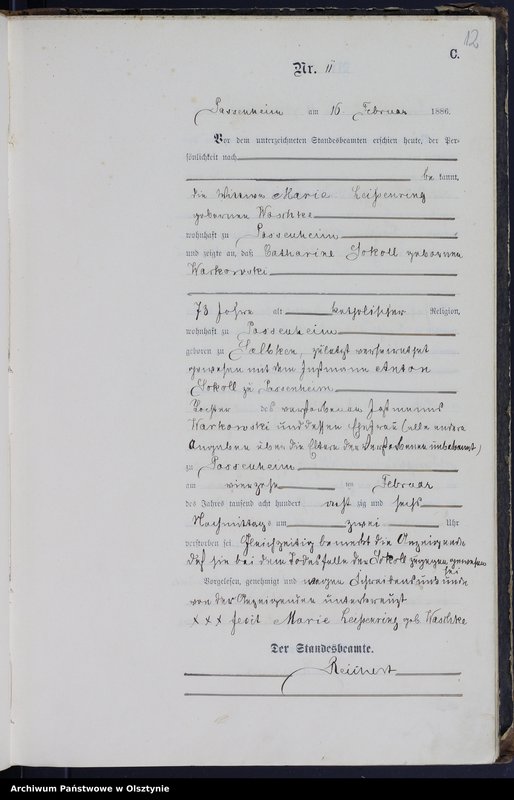 12
C.
Nr. 11
Passenheim am 16. Februar 1886.
Vor dem unterzeichneten Standesbeamten erschien heute, der Per-
sönlichkeit nach
be kannt,
die Wittwe Marie Leißenring
geborenen Waschke
wohnhaft zu Passenheim
und zeigte an, daß Catharine Sokoll geborenen
Warkowski
73 Jahre alt katholischer Religion,
wohnhaft zu Passenheim
geboren zu zuletzt verheirathet
gewesen mit dem Instmann Anton
Sokoll zu Passenheim
Tochter des verstorbenen Instmanns
Warkowski und dessen Ehefrau (alle andere
Angaben über die Eltern der Verstorbenen unbekannt)
zu Passenheim
am vierzehn ten Februar
des Jahres tausend acht hundert acht zig und sechs
Nachmittag s um zwei Uhr
verstorben sei. Gleichzeitig bemerkt die Anzeigende
daß sie bei dem Todesfalle der Sokoll zugegen gewesen
sei
Vorgelesen, genehmigt und wegen Schreibensunkunde
von der Anzeigenden unterkreuzt
x x x fecit Marie Leißenring geb. Waschke
Der Standesbeamte.
Reichert
Archiwum Państwowe w Olsztynie